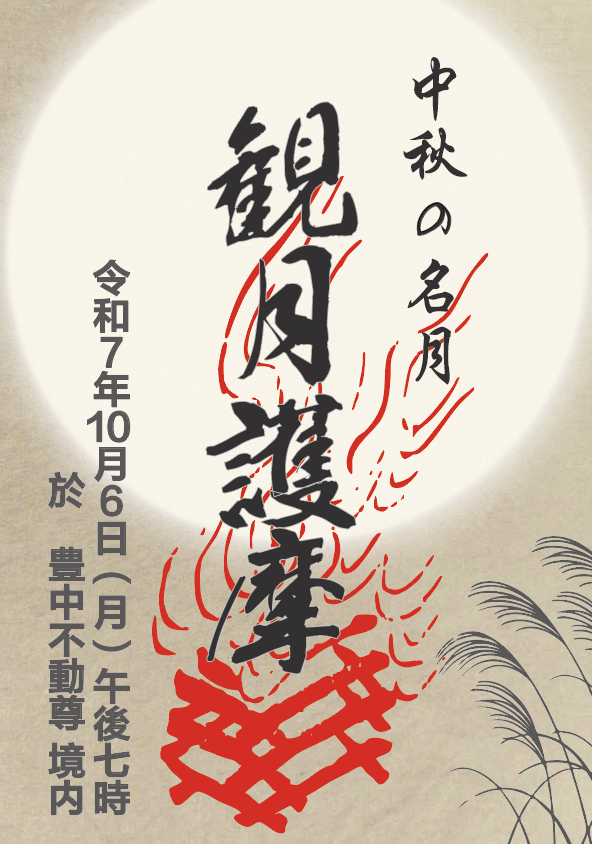 中秋の名月
観月護摩
令和7年10月6日(月)午後七時
於 豊中不動尊 境内